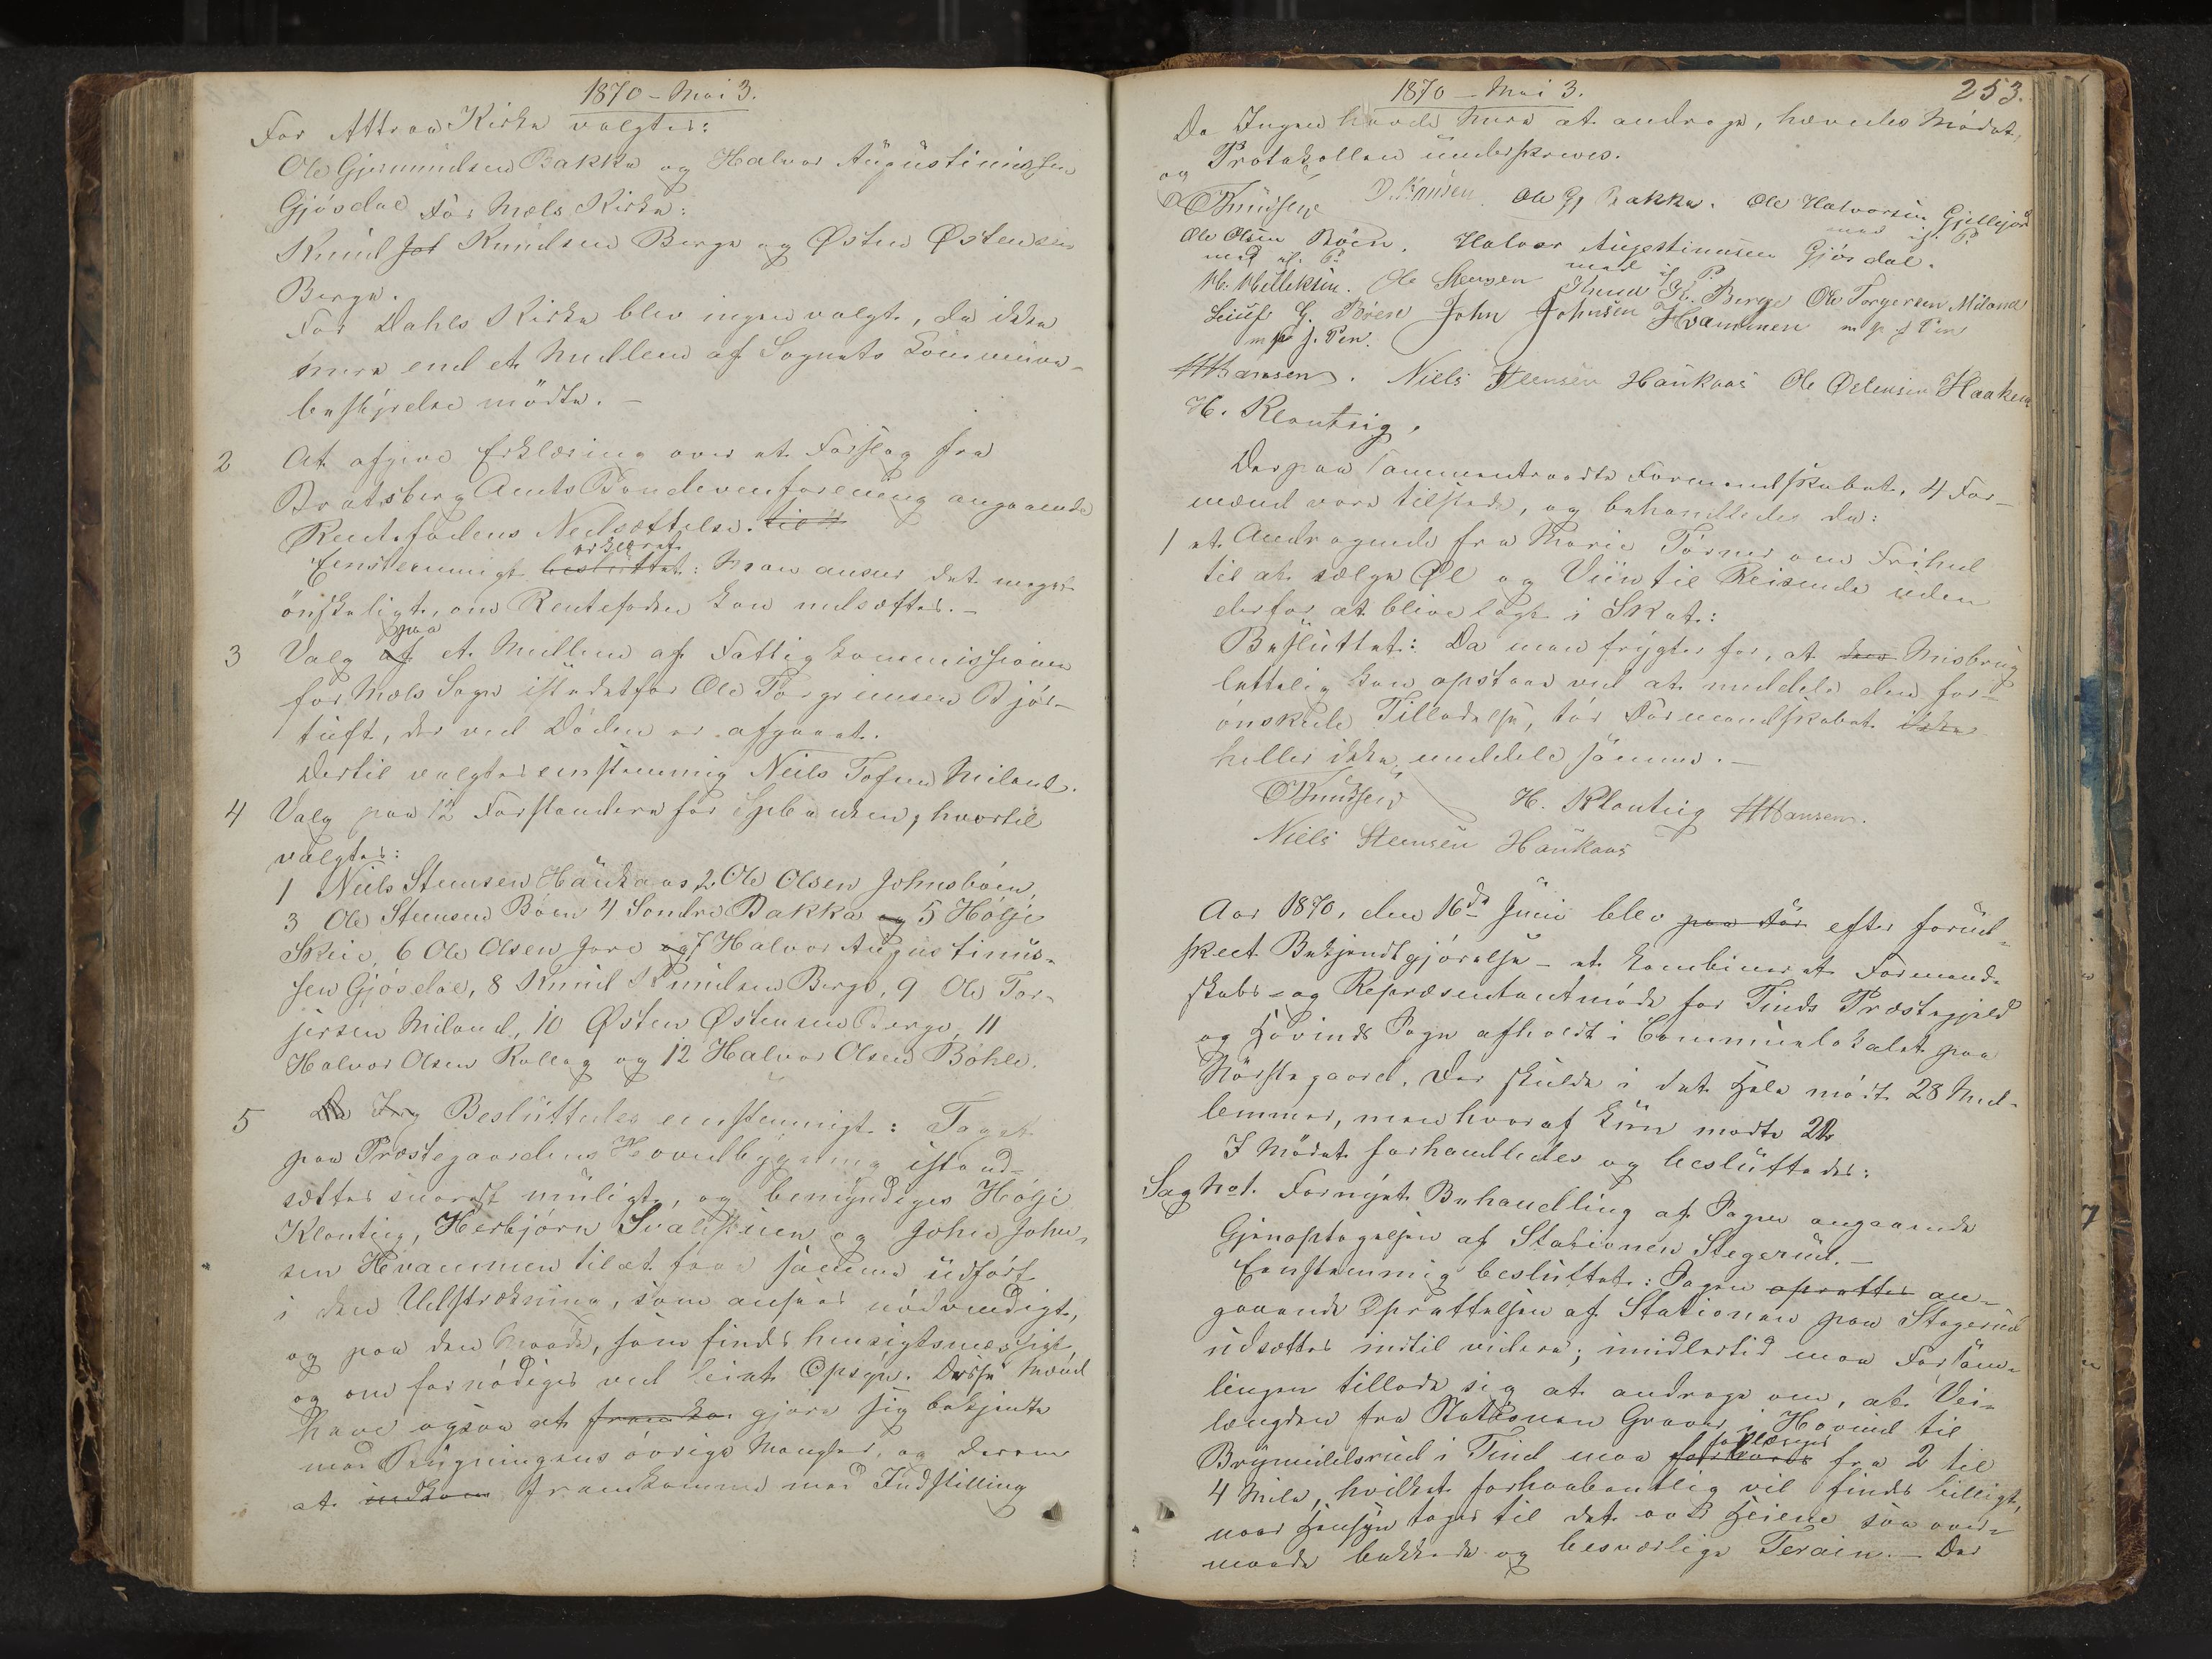 1870 – Mai 3.
For Attraa Kirke valgtes:
Ole Gjermundsen Bakka og Halvor Augustinussen
Gjøsdal for Mæls Kirke:
Knud Jol Knudsen Berge og Østen Østensen
Berge.
For Dahls Kirke blev ingen valgt, da ikke
mere end et Medlem af Sognets Kommune-
bestyrelse mødte. –
2 At afgive Erklæring over et Forslag fra
Bratsberg Amts Bondevenforening angaaende
Rentefodens Nedsættelse. til
erklæret
Eenstemmigt besluttet: Man anser det meget
ønskeligt, om Rentefoden kan nedsættes. –
paa
3 Valg af et Medlem af Fattigkommissionen
for Mæls Sogn istedetfor Ole Torgrimsen Bjør-
tuft, der ved Døden er afgaaet.
Dertil valgtes eenstemmig Niels Tofsen Miland.
4 Valg paa 12 Forstandere for Spbanken, hvortil
valgtes:
1 Niels Steensen Haukaas 2 Ole Olsen Johnsbøen,
3 Ole Steensen Bøen 4 Sondre Bakka og 5 Hølje
Skeie, 6 Ole Olsen Jore og 7 Halvor Augustinus-
sen Gjøsdal, 8 Knud Knudsen Berge, 9 Ole Tor-
jersen Miland, 10 Østen Østensen Berge, 11
Halvor Olsen Rollag og 12 Halvor Olsen Bøhle.
5 Da Ing Besluttedes eenstemmigt: Taget
paa Præstegaardens Hovedbygning istand-
sættes snarest muligt, og bemyndiges Hølje
Klonteig, Herbjørn Svalestuen og John John-
sen Hvammen til at faae samme udført
i den Udstrækning, som ansees nødvendigt,
og paa den Maade, som findes hensigtsmæssigt
og om fornødiges ved leiet Opsyn. Disse Mænd
have ogsaa at gjøre sig bekjendte
med Bygningens øvrige Mangler, og derom
at indkom fremkomme med Indstilling
1870 – Mai 3.
253.
Da Ingen havde mere at andrage, hævedes Mødet,
og Protokollen underskreves.
O Knudsen D. Hansen. Ole Gj Bakka. Ole Halvorsen Gjellesjor
med if. P.
Ole Olsen Bøen. Halvor Augestinusen Gjøsdal.
med if. P. med if P.
H. Helleksen. Ole Steensen Knud K. Berge Ole Torgersen Miland
Leiuf G. Bøen John Johnsen Hvammen m p f Pen
m p f. Pen.
HHansen. Niels Steensen Haukaas Ole Østensen Haaken
H. Klonteig.
Derpaa sammentraadte Formandskabet, 4 For-
mænd vare tilstede, og behandledes da:
1 et Andragende fra Marie Tørnes om Frihed
til at sælge Øl og Viin til Reisende uden
derfor at blive lagt i Skat:
Besluttet: Da man frygter for, at Misbrug
lettelig kan opstaae ved at meddele den for-
ønskede Tilladelse, tør Formandskabet ikke
heller ikke meddele samme. –
O Knudsen H. Klonteig HHansen.
Niels Steensen Haukaas
Aar 1870, den 16de Juni blev paa For efter forud-
skeet Bekjendtgjørelse – et kombineret Formand-
skabs- og Repræsentantmøde for Tinds Præstegjeld
og Hovinds Sogn afholdt i Communelokalet paa
Mørstegaard. Der skulde i det Hele mødt 28 Med-
lemmer, men hvoraf kun mødte 22
I Mødet forhandledes og besluttedes:
Sag No 1. Fornyet Behandling af Sagen angaaende
Gjenoptagelsen af Stationen Stegerud. –
Eenstemmig besluttet: Sagen oprettes an-
gaaende Oprettelsen af Stationen paa Stegerud
udsættes indtil videre; imidlertid maa Forsam-
lingen tillade sig at andrage om, at Vei-
længden fra Stationen Graver i Hovind til
forlænges
Brynildsrud i Tind maa fra 2 til
4 Mile, hvilket forhaabentlig vil findes billigt,
naar Hensyn tages til det ved Heiene saa over-
maade bakkede og besværlige Terain. – Der